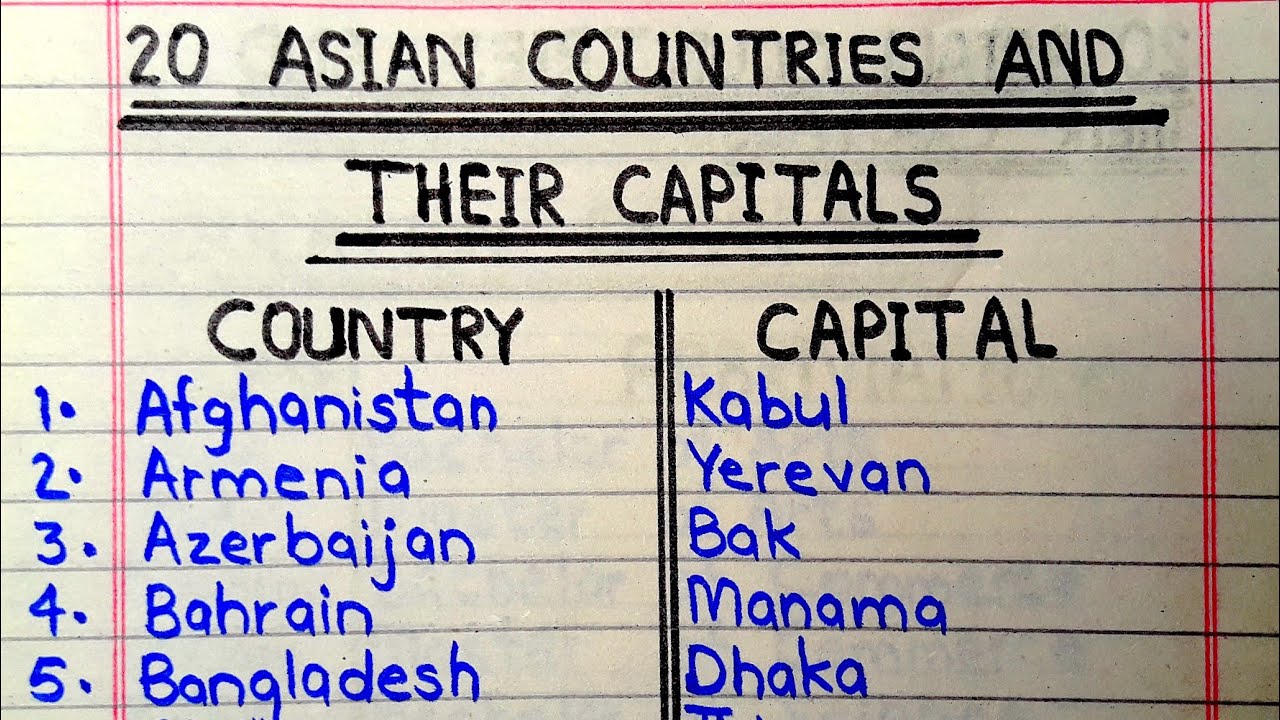 20 ASIAN COUNTRIES AND
THEIR CAPITALS
COUNTRY CAPITAL
1. Afghanistan Kabul
2. Armenia Yerevan
3. Azerbaijan Bak
4. Bahrain Manama
5. Bangladesh Dhaka